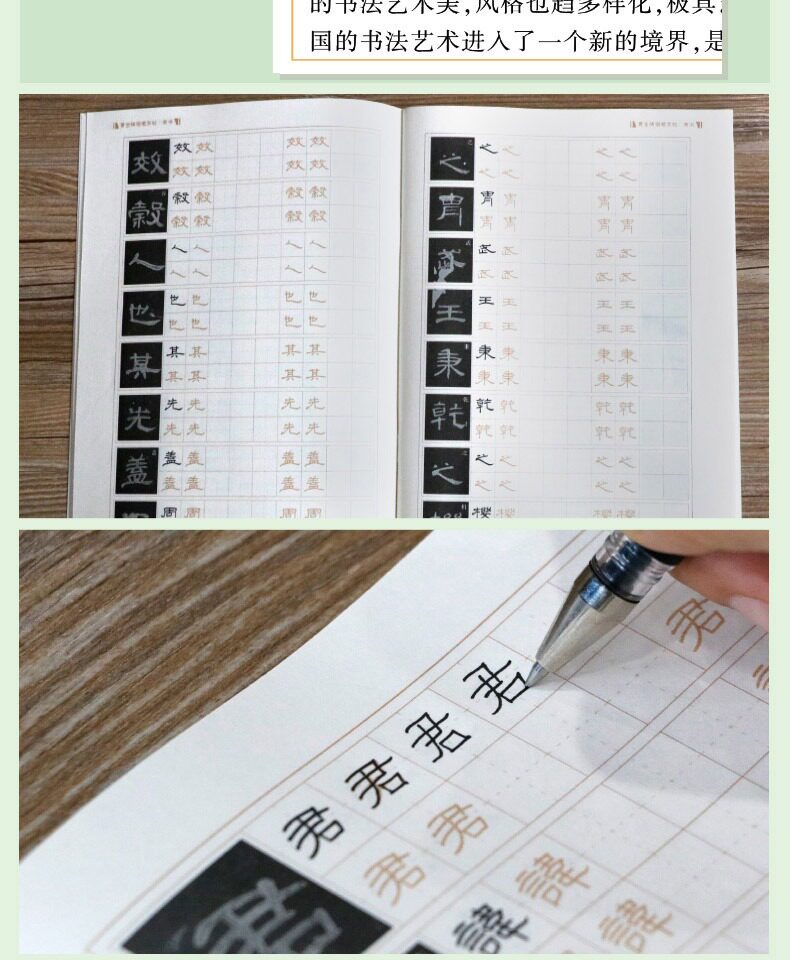 的书法艺术美,风格也趋多样化,极具
国的书法艺术进入了一个新的境界,是
效 效 效 效 效
效 效 效 效
穀 穀 穀 穀 穀
穀 穀 穀 穀
人 人 人 人 人
人 人 人 人
也 也 也 也 也
也 也 也 也
其 其 其 其 其
其 其 其 其
先 先 先 先 先
先 先 先 先
盖 盖 盖 盖 盖
盖 盖 盖 盖
周 周 周 周 周
之 之 之 之 之
之 之 之 之
胄 胄 胄 胄 胄
胄 胄 胄 胄
武 武 武 武 武
武 武 武 武
王 王 王 王 王
王 王 王 王
秉 秉 秉 秉 秉
秉 秉 秉 秉
乾 乾 乾 乾 乾
乾 乾 乾 乾
之 之 之 之 之
之 之 之 之
君 君 君 君 君 君
君 君
諱 諱 諱